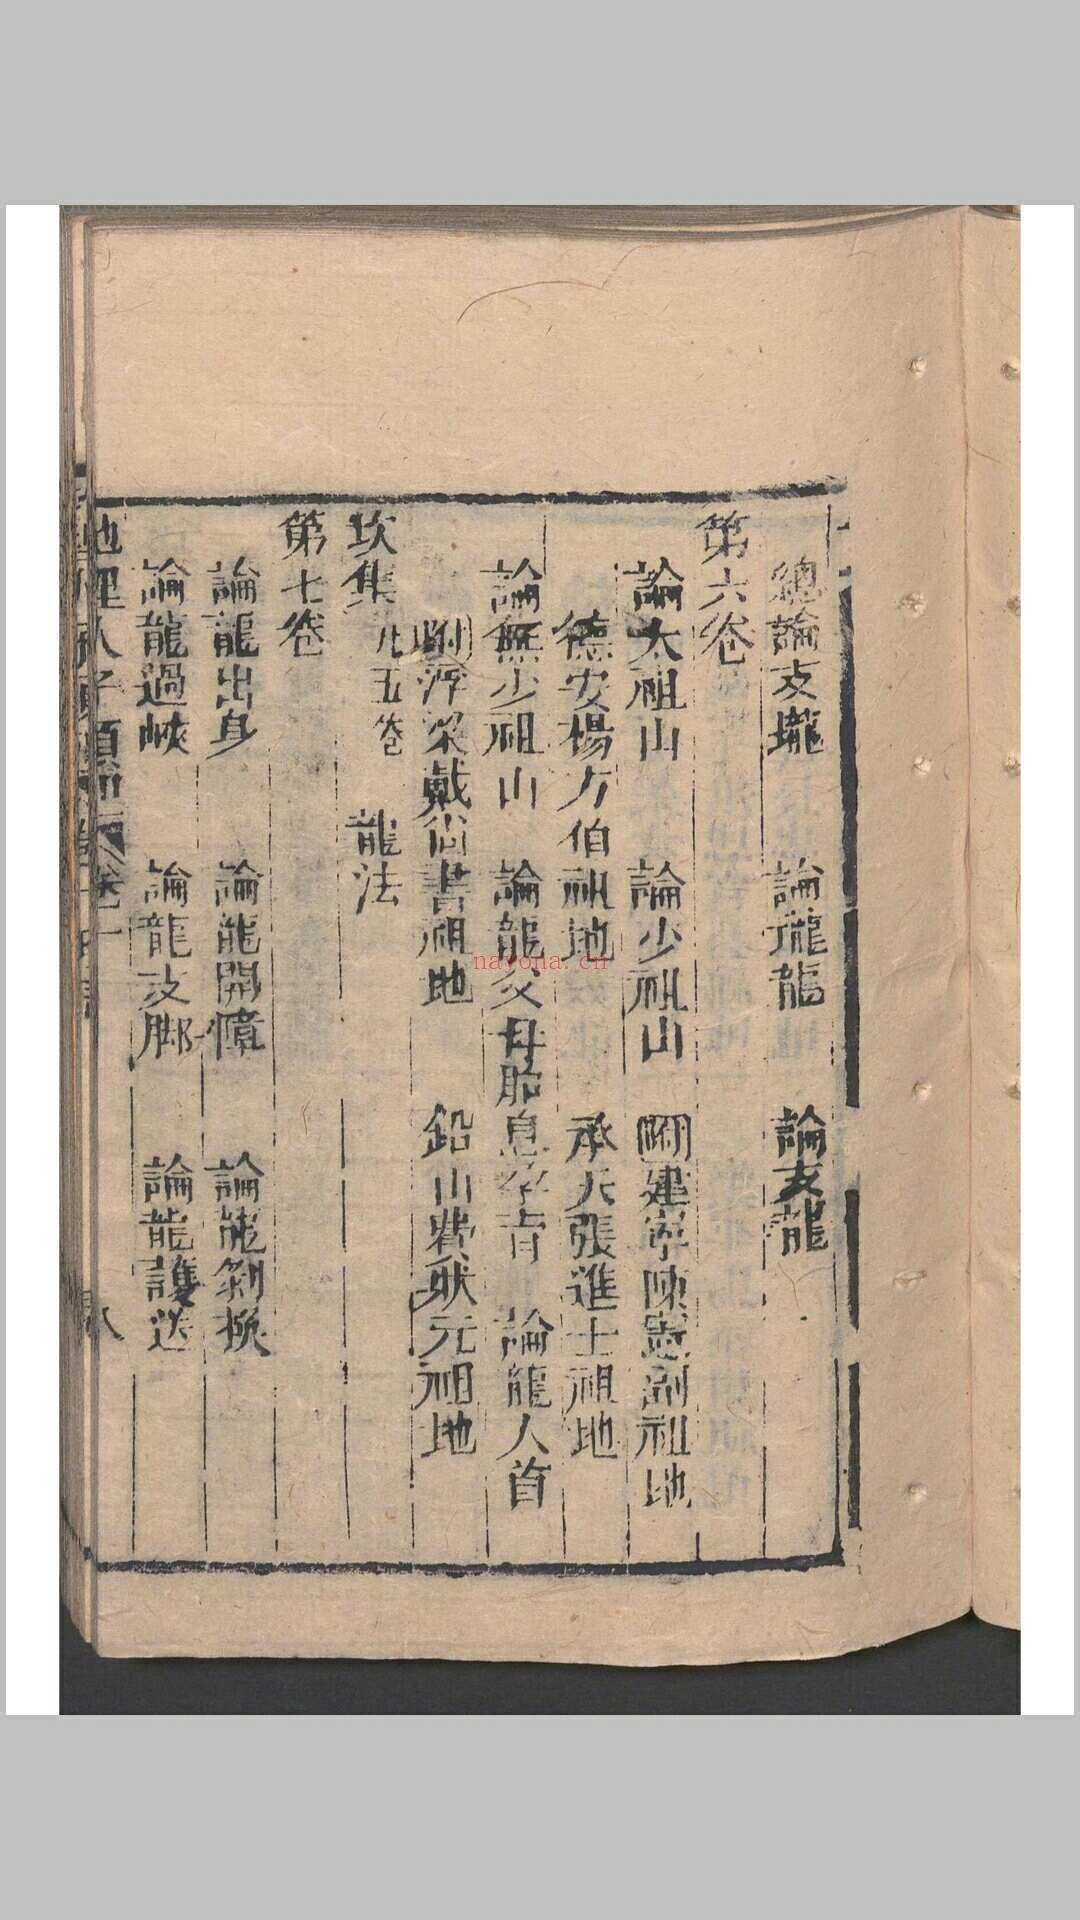 總論支壠　論壠龍　論支龍
第六卷
論太祖山　論少祖山　附建寧陳憲副祖地
德安楊方伯祖地　承天張進士祖地
論無少祖山　論龍父母胎息孕育　論龍人首
附浮梁戴尚書祖地　鉛山費狀元祖地
坎集　凡五卷　龍法
第七卷
論龍出身　論龍開幛　論龍剝換
論龍過峽　論龍支脚　論龍護送
地理人子須知　卷一　八
nayona.cn